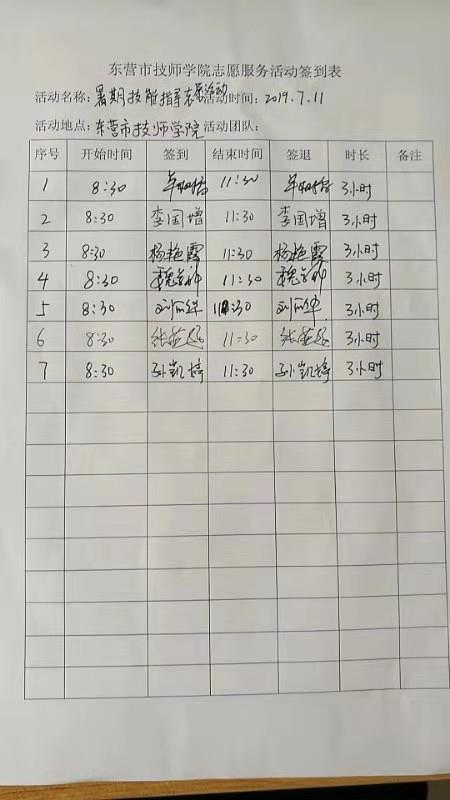 东营市技师学院志愿服务活动签到表
活动名称：暑期技能指导志愿活动 活动时间：2019.7.11
活动地点：东营市技师学院 活动团队：
序号 开始时间 签到 结束时间 签退 时长 备注
1 8:30 11:30 3小时
2 8:30 李国增 11:30 李国增 3小时
3 8:30 杨艳霞 11:30 杨艳霞 3小时
4 8:30 11:30 3小时
5 8:30 11:30 3小时
6 8:30 11:30 3小时
7 8:30 孙凯婷 11:30 孙凯婷 3小时